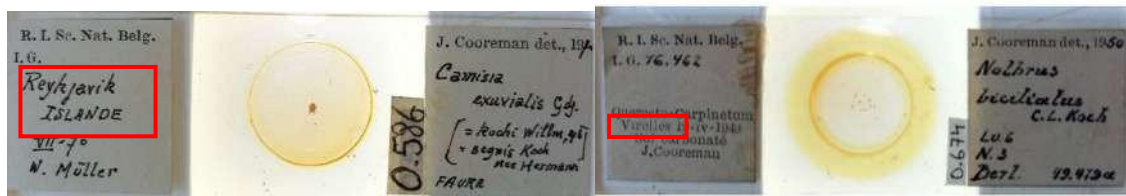 R. I. Sc. Nat. Belg.
I.G.
Reykjavik
ISLANDE
VII-70
W. Müller
0.586
J. Cooreman det., 19
Camisia
exuvialis Grdj.
= Kochi Willm,
= segnis Koch
nec Hermann
FAUNE
R. I. Sc. Nat. Belg.
I. G. 16.462
Querceto-Carpinetum
Virelles -iv-1948
Sol carbonaté
J.Cooreman
0.674
J. Cooreman det., 1950
Nothrus
biciliatus
C.L. Koch
LV.6
N.3
Berl. 19.479a